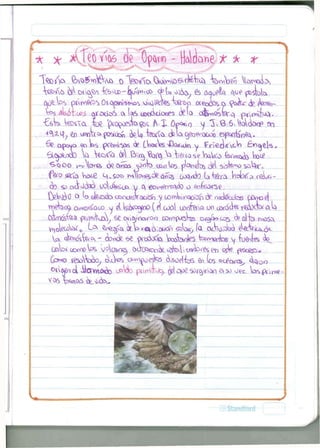 * * * Teorías de Oparin - Haldane * * *
Teoría Biosintética o Teoría Quimiosintética también llamada
teoría del origen físico-químico de la vida, es aquella que postula
que los primeros organismos vivientes fueron creados a partir de elemen-
tos abióticos gracias a las condiciones de la atmósfera primitiva.
Esta teoría fue propuesta por A. I. Oparin y J. B. S. Haldane en
1924, en contra posición de la teoría de la generación espontánea.
Se apoya en las premisas de Charles Darwin y Friedrich Engels.
Siguiendo la teoría del Big Bang la tierra se habría formado hace
5600 millones de años junto con los planetas del sistema solar.
Pero sería hace 4.500 millones de años cuando la tierra habría reduci-
do su actividad volcánica y a comenzado a enfriarse.
Debido a la elevada concentración y combinación de moléculas para el
metano, amoniaco y el hidrógeno (el cual confería un carácter reductor a la
atmósfera primitiva), se originaron compuestos orgánicos de alta masa
molecular. La energía de la radiación solar, la actividad eléctrica de
la atmósfera - donde se producía bastantes tormentas y fuentes de
calor como los volcanes, actuaron de catalizadores en este proceso.
Como resultado, dichos compuestos disueltos en los océanos, dieron
origen al llamado caldo primitivo del que surgirían a su vez las prime-
ras formas de vida.
Standford